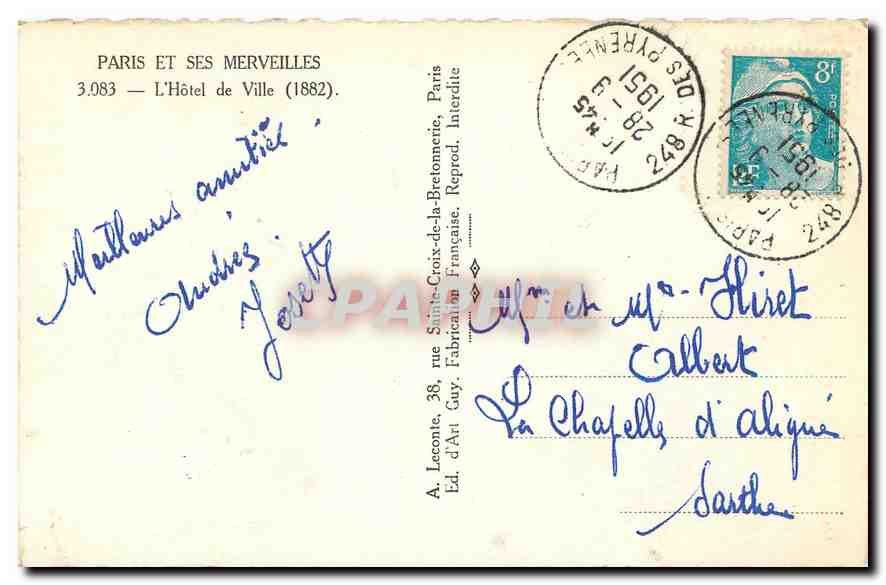 PARIS ET SES MERVEILLES
3.083 — L'Hôtel de Ville (1882).
Meilleures amitiés.
Andrée.
Josette
A. Leconte, 38, rue Sainte-Croix-de-la-Bretonnerie, Paris
Ed. d'Art Guy. Fabrication Française. Reprod. Interdite
CPAPHIL
PARIS 248 R. DES PYRÉNÉES
28 - 9
1951
8f
POSTES
RF
PARIS 248 R. DES PYRÉNÉES
28 - 9
1951
Mme et Mr Hiret
Albert
La Chapelle d'Aligné
Sarthe